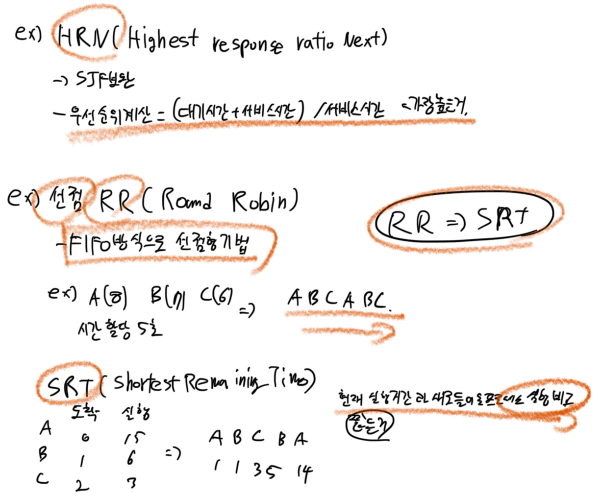 ex) HRN( Highest response ratio Next)
-> SJF보완
- 우선순위계산 = (대기시간+서비스시간) / 서비스시간 =가장높은거.
ex) 선점 RR ( Round Robin)
RR => SRT
-FIFO방식으로 선점형기법
ex) A(8) B(7) C(6) => A B C A BC.
시간 할당 5초
SRT ( Shortest Remaining Time)
현재 실행시간 과 새로들어온 비교
도착 실행
짧은거
A 0 15
B 1 6 => A B C B A
C 2 3 1 1 3 5 14